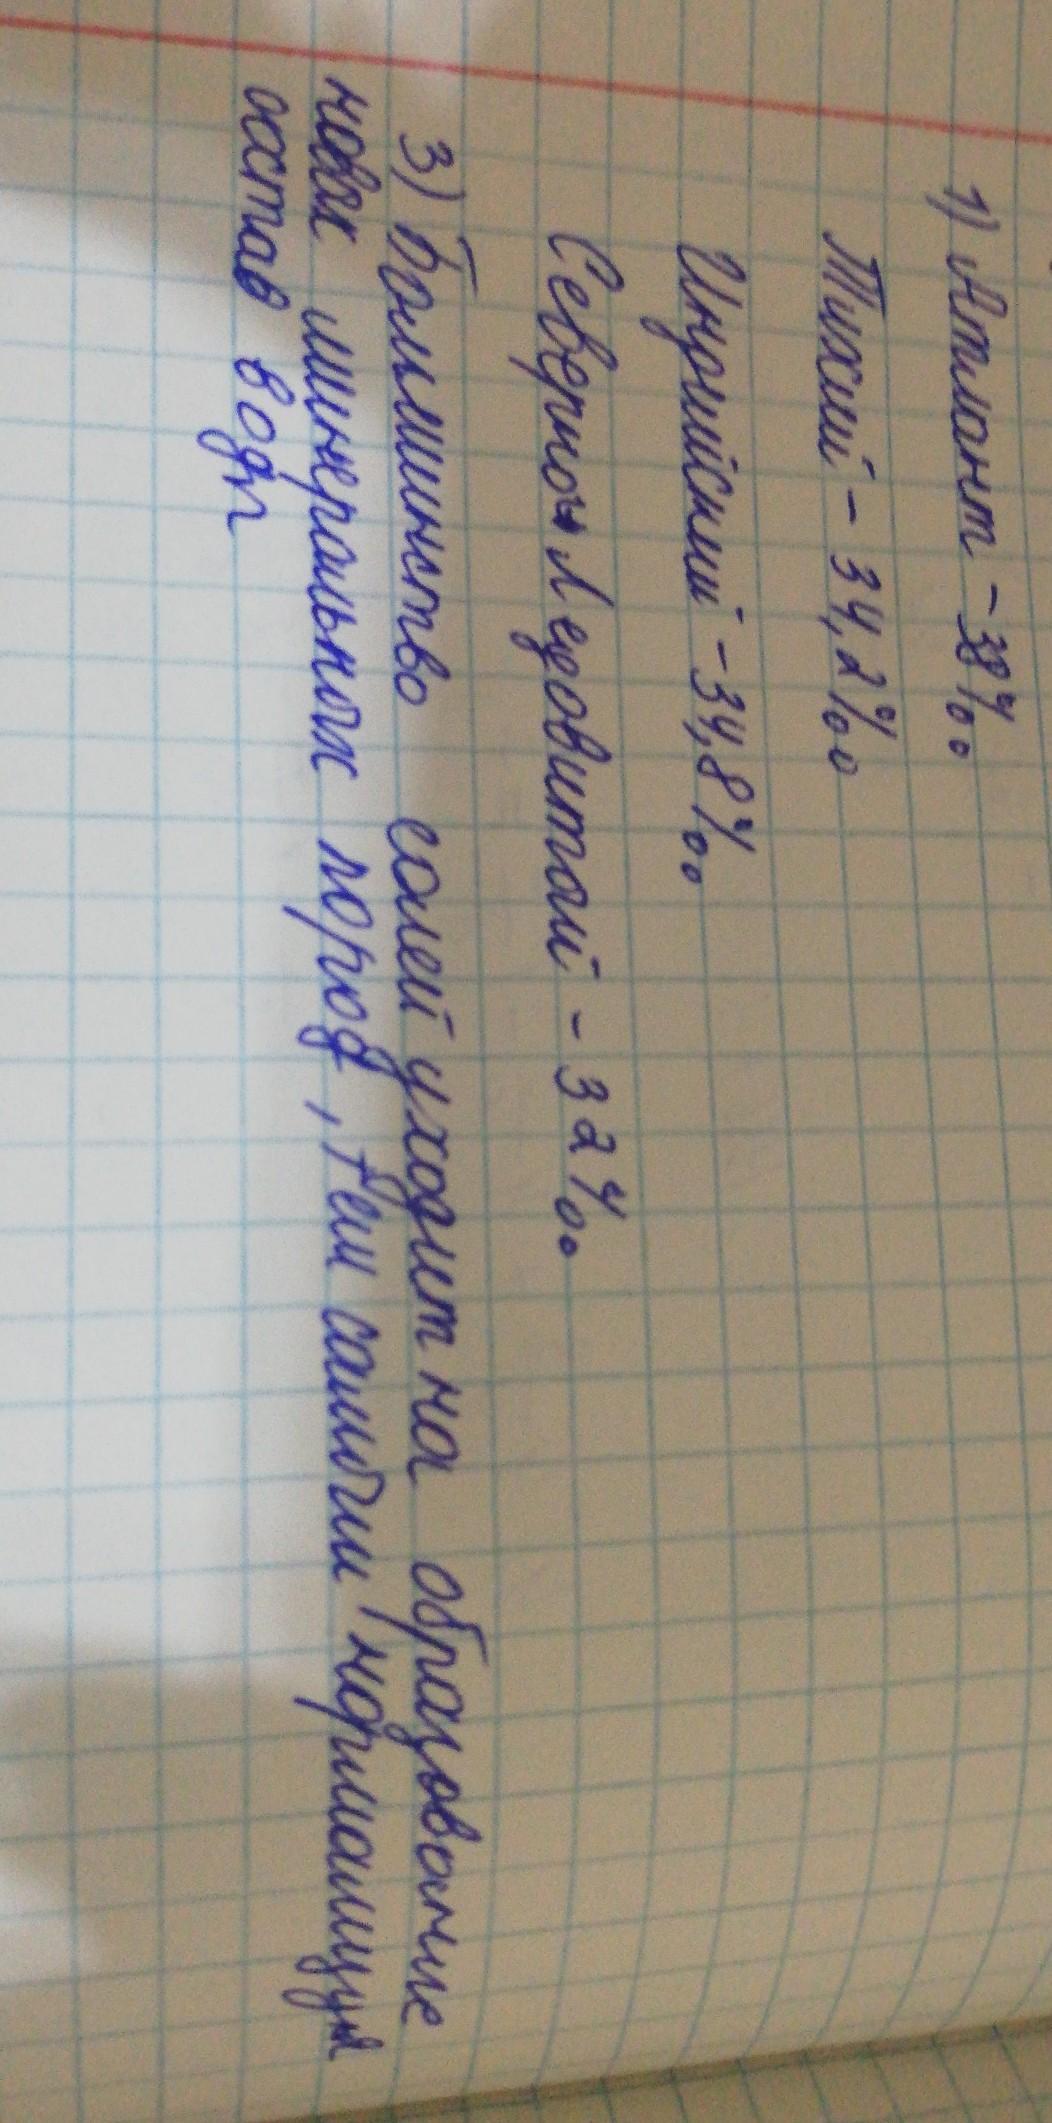 1) Атлант - 38‰
Тихий - 34,2‰
Индийский - 34,8‰
Северный Ледовитый - 32‰
3) Большинство солей уходит на образование
новых минеральных пород, тем самым нормализуя
остав воды